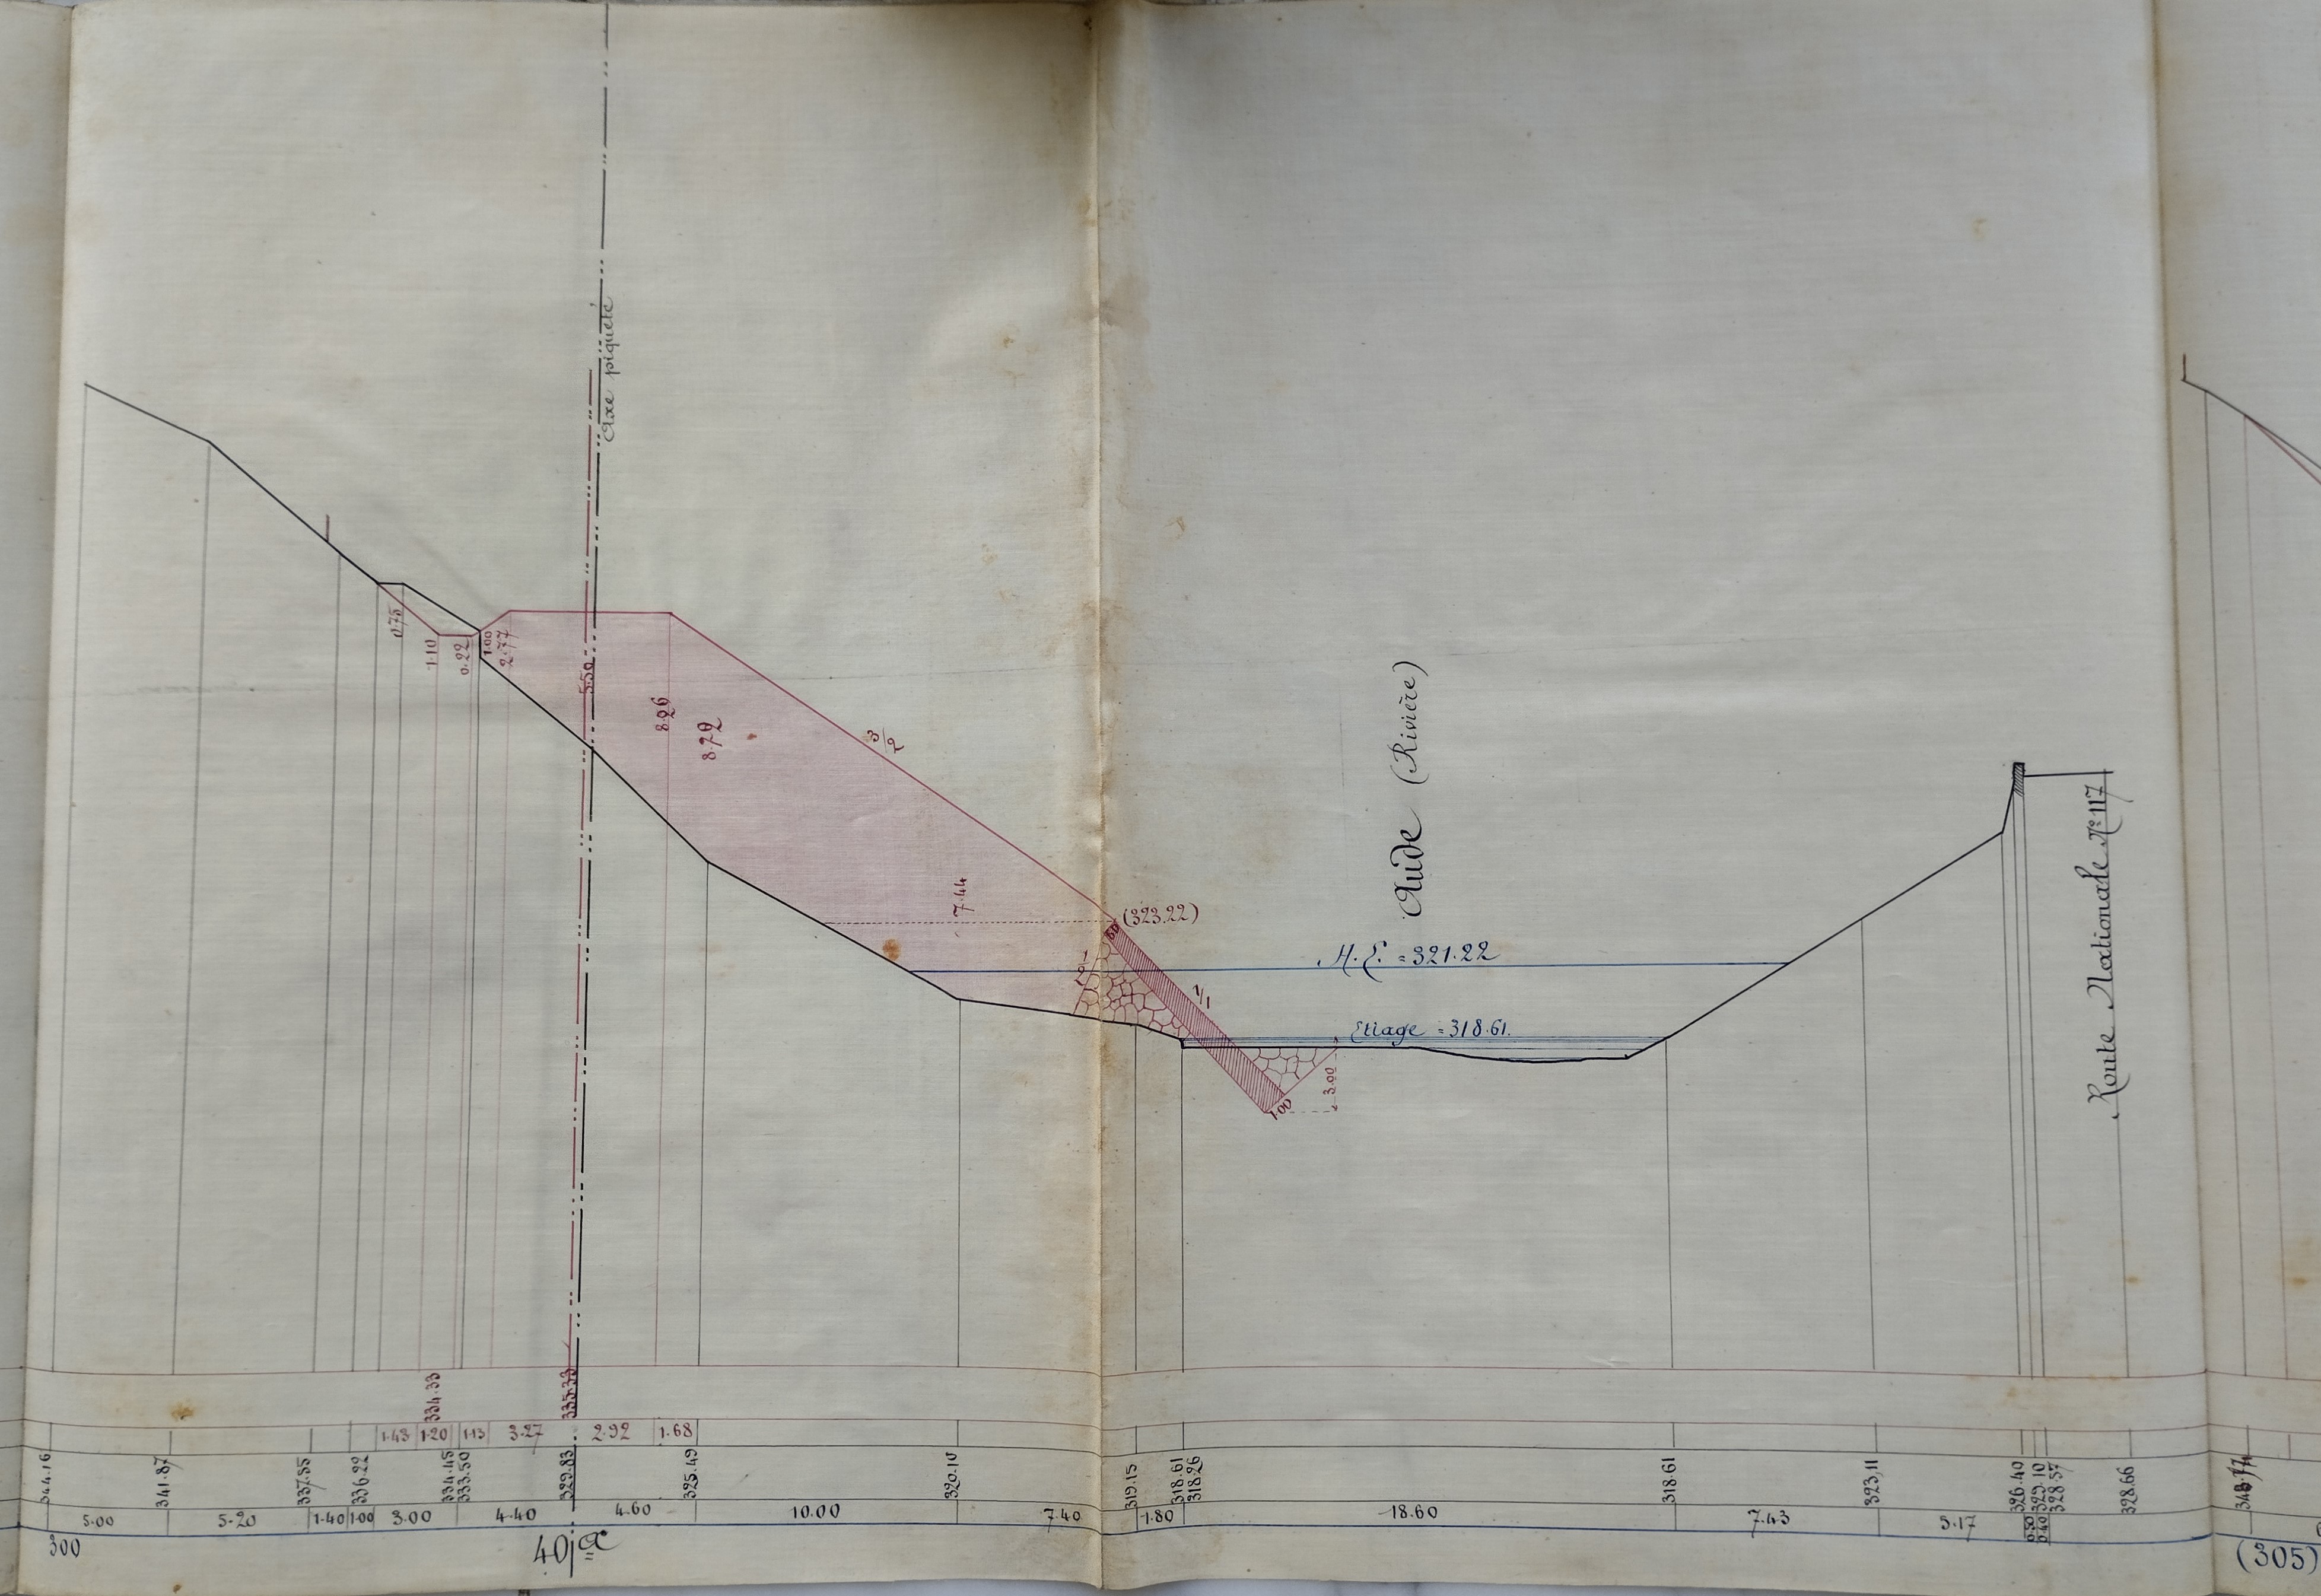 Axe piqueté
0.75
1.10
0.22
1.00
2.77
5.50
8.96
872
3/2
7.44
(323.22)
60
1/2
1/1
H.E. = 321.22
Etiage = 318.61.
3.00
1.00
Aude (Rivière)
Route Nationale N° 117
334.33
335.33
1.43 1.20 1.13 3.27 2.92 1.68
344.16 341.87 337.55 336.22 334.45 333.50 329.83 325.49 320.10 319.15 318.61 318.26 318.61 323,11 326.40 329.10 328.57 328.66
5.00 5.20 1.40 1.00 3.00 4.40 4.60 10.00 7.40 1.80 18.60 7.43 5.17 0.50 0.40
300
40 a
(305)